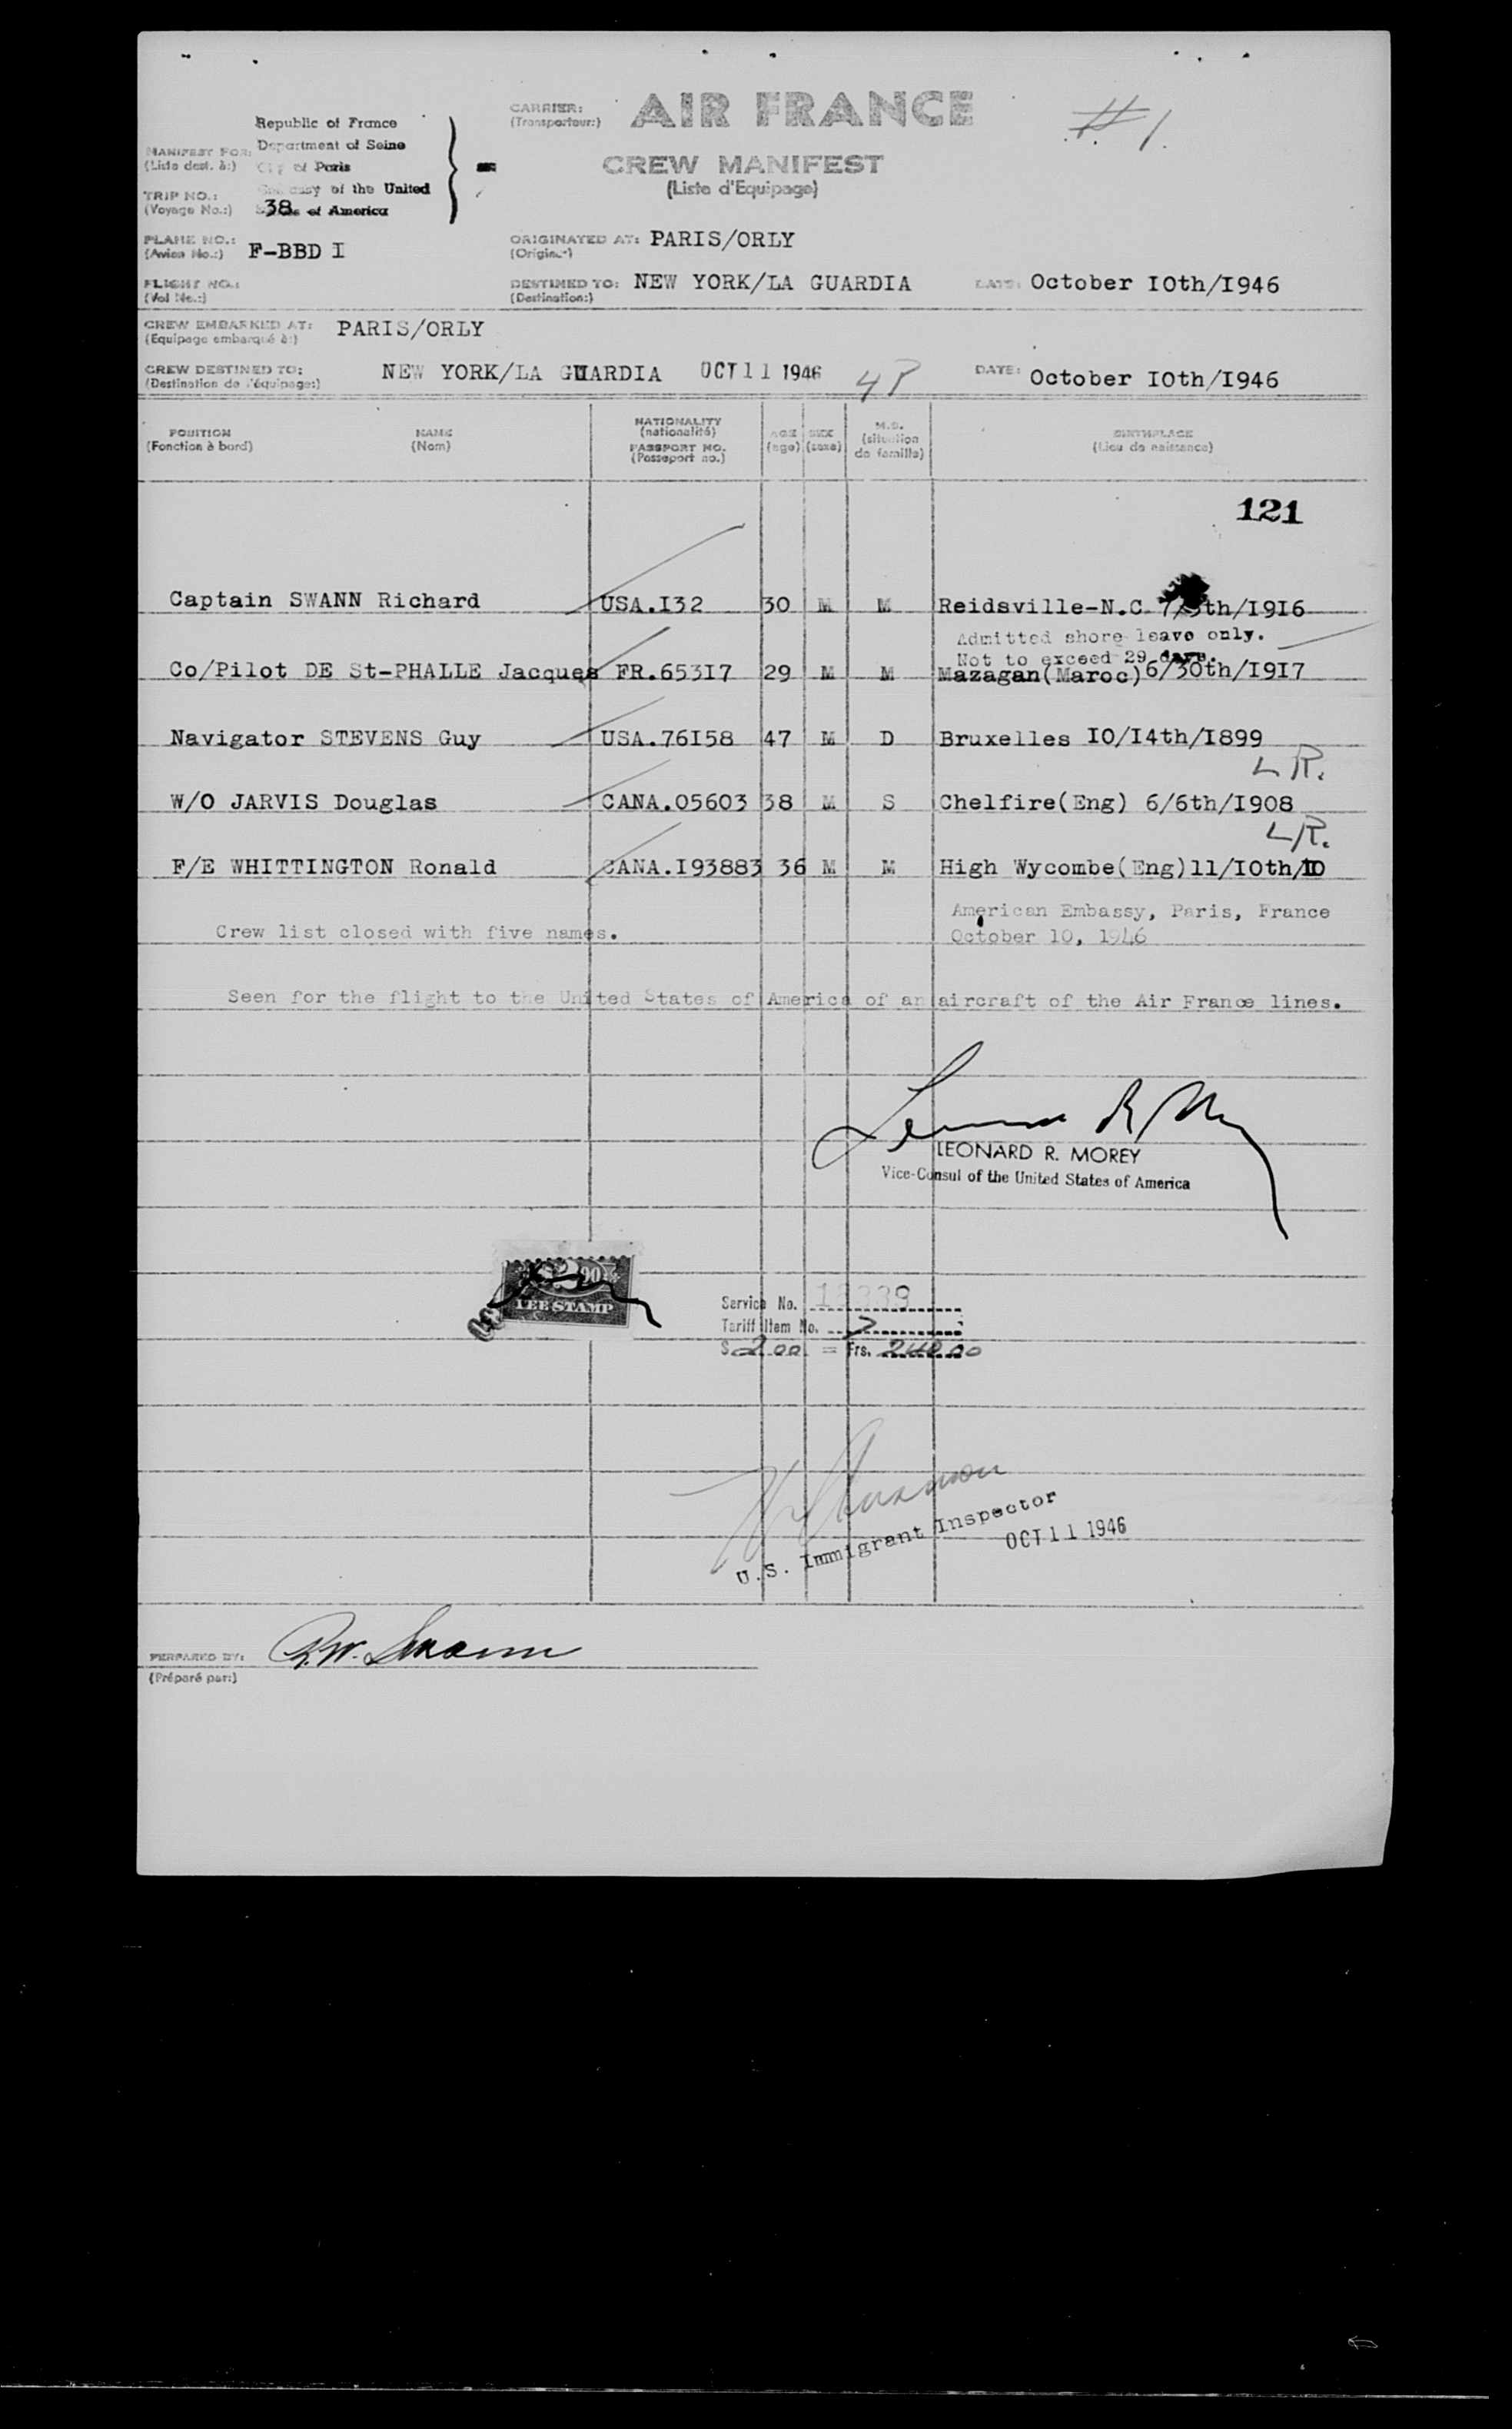 #1
CARRIER: AIR FRANCE
(Transporteur:)
CREW MANIFEST
(Liste d'Equipage)
Republic of France
Department of Seine
City of Paris
Embassy of the United
States of America
MANIFEST FOR:
(Liste dest. à:)
TRIP NO.: 38
(Voyage No.:)
PLANE NO.: F-BBD I
(Avion No.:)
ORIGINATED AT: PARIS/ORLY
(Origine:)
FLIGHT NO.:
(Vol No.:)
DESTINED TO: NEW YORK/LA GUARDIA DATE: October IOth/I946
(Destination:)
CREW EMBARKED AT: PARIS/ORLY
(Equipage embarqué à:)
CREW DESTINED TO: NEW YORK/LA GUARDIA OCT 11 1946 4P DATE: October IOth/I946
(Destination de l'équipage:)
POSITION NAME NATIONALITY AGE SEX M.S. BIRTHPLACE
(Fonction à bord) (Nom) (nationalité) (age) (sexe) (situation de famille) (Lieu de naissance)
PASSPORT NO.
(Passeport no.)
121
Captain SWANN Richard USA.I32 30 M M Reidsville-N.C. th/I9I6
Admitted shore leave only.
Not to exceed 29 days.
Co/Pilot DE St-PHALLE Jacques FR.653I7 29 M M Mazagan(Maroc) 6/30th/I9I7
Navigator STEVENS Guy USA.76I58 47 M D Bruxelles IO/I4th/I899
L R.
W/O JARVIS Douglas CANA.05603 38 M S Chelfire(Eng) 6/6th/I908
L R.
F/E WHITTINGTON Ronald CANA.I93883 36 M M High Wycombe(Eng)11/IOth/10
American Embassy, Paris, France
October 10, 1946
Crew list closed with five names.
Seen for the flight to the United States of America of an aircraft of the Air France lines.
LEONARD R. MOREY
Vice-Consul of the United States of America
FEE STAMP
Service No. 18339
Tariff Item No. 7
$ 2.00 = Frs. 240.00
U.S. Immigrant Inspector
OCT 11 1946
PREPARED BY: R.W. Swann
(Préparé par:)